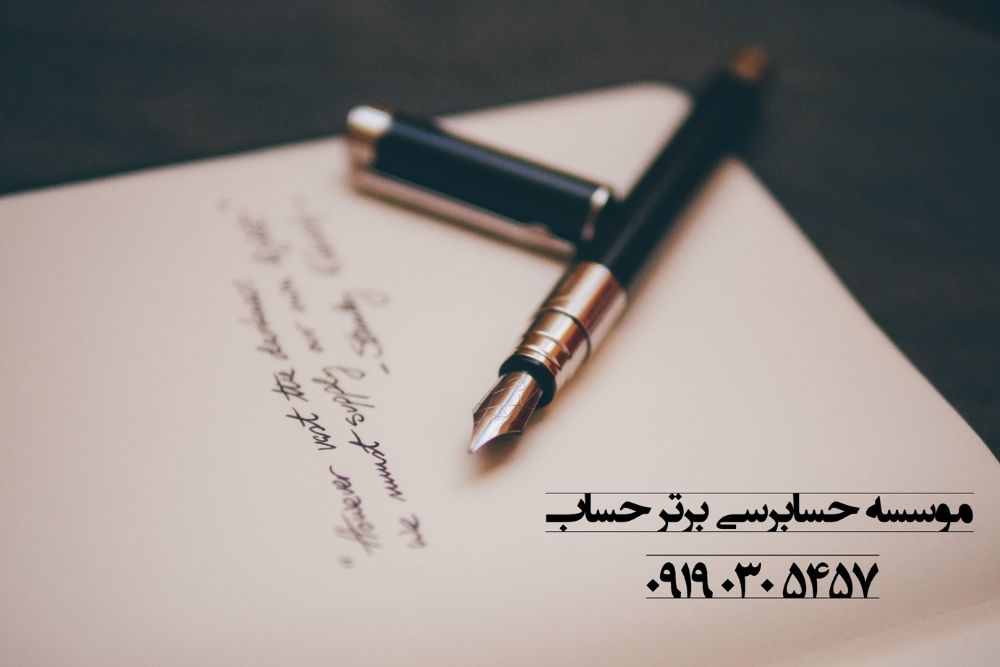 "However vast the darkness
we must supply our own light"
- Stanley Kubrick
موسسه حسابرسی برتر حساب
۰۹۱۹ ۰۳۰ ۵۴۵۷